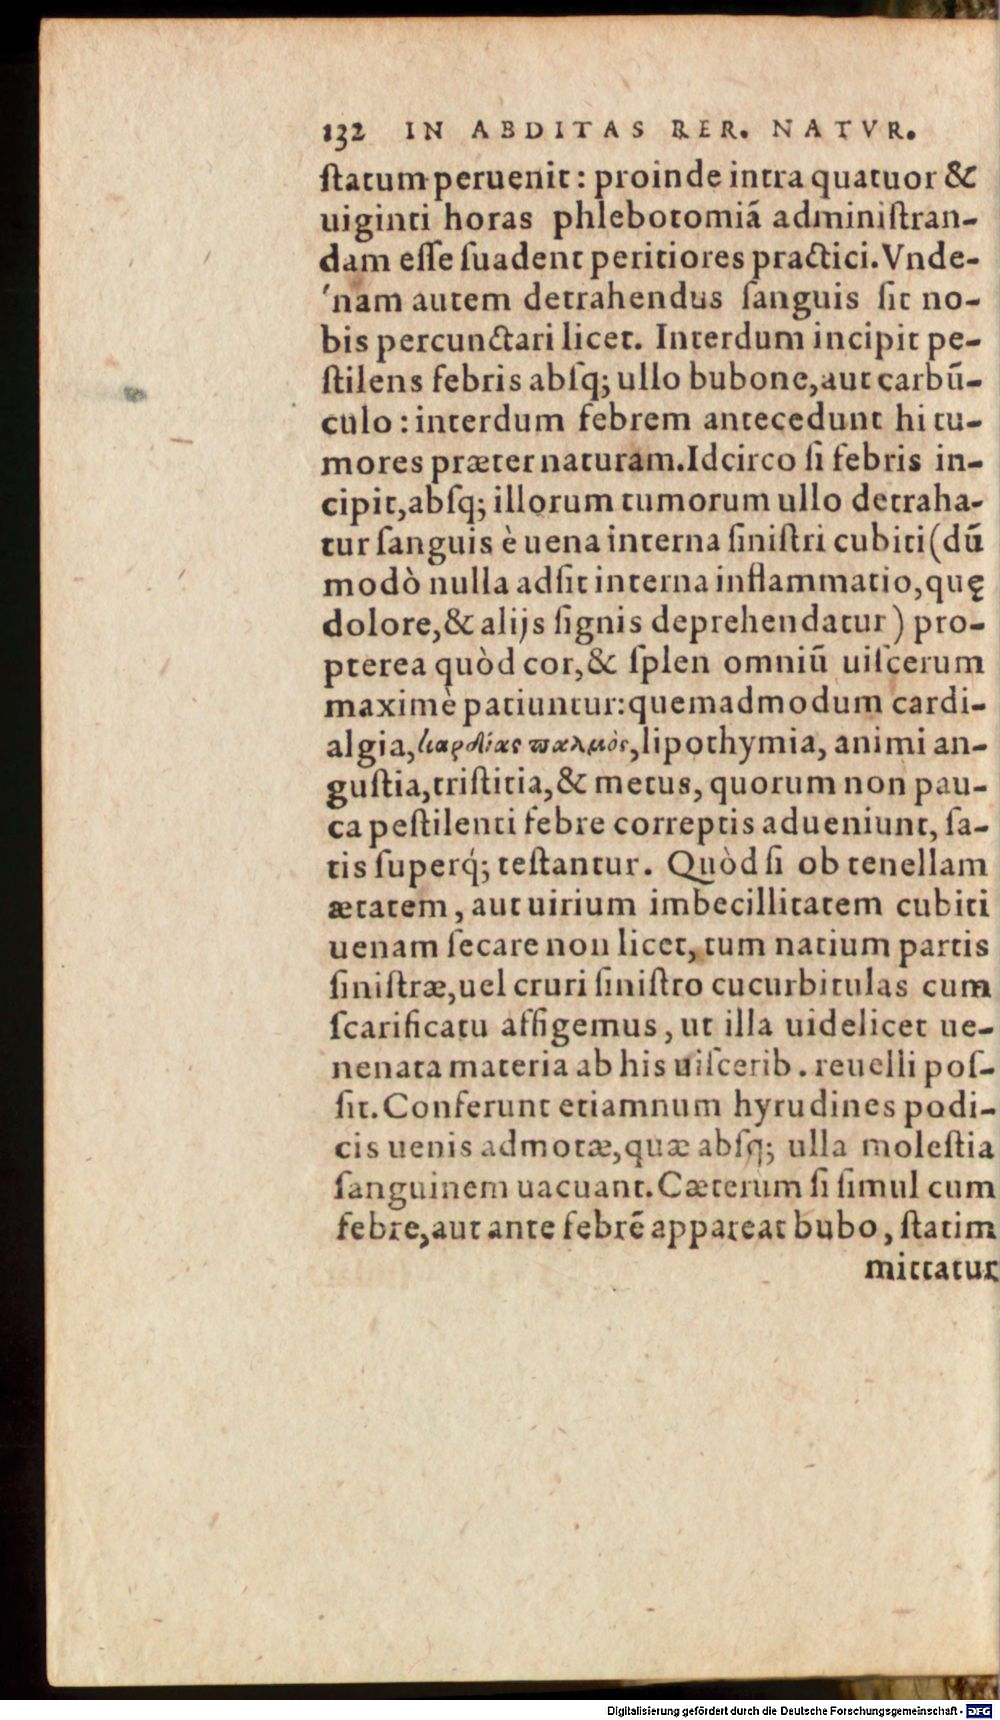 132 IN ABDITAS RER. NATVR.
ſtatum peruenit: proinde intra quatuor &
uiginti horas phlebotomiã adminiſtran-
dam eſſe ſuadent peritiores practici. Vnde-
'nam autem detrahendus ſanguis ſit no-
bis percunctari licet. Interdum incipit pe-
ſtilens febris abſq; ullo bubone, aut carbũ-
culo: interdum febrem antecedunt hi tu-
mores præter naturam. Idcirco ſi febris in-
cipit, abſq; illorum tumorum ullo detraha-
tur ſanguis è uena interna ſiniſtri cubiti (dũ
modò nulla adſit interna inflammatio, quę
dolore, & alijs ſignis deprehendatur) pro-
pterea quòd cor, & ſplen omniũ uiſcerum
maximè patiuntur: quemadmodum cardi-
algia, καρδίας παλμὸς, lipothymia, animi an-
guſtia, triſtitia, & metus, quorum non pau-
ca peſtilenti febre correptis adueniunt, ſa-
tis ſuperq́; teſtantur. Quòd ſi ob tenellam
ætatem, aut uirium imbecillitatem cubiti
uenam ſecare non licet, tum natium partis
ſiniſtræ, uel cruri ſiniſtro cucurbitulas cum
ſcarificatu affigemus, ut illa uidelicet ue-
nenata materia ab his uiſcerib. reuelli poſ-
ſit. Conferunt etiamnum hyrudines podi-
cis uenis admotæ, quæ abſq; ulla moleſtia
ſanguinem uacuant. Cæterum ſi ſimul cum
febre, aut ante febrẽ appareat bubo, ſtatim
mittatur
Digitalisierung gefördert durch die Deutsche Forschungsgemeinschaft - DFG